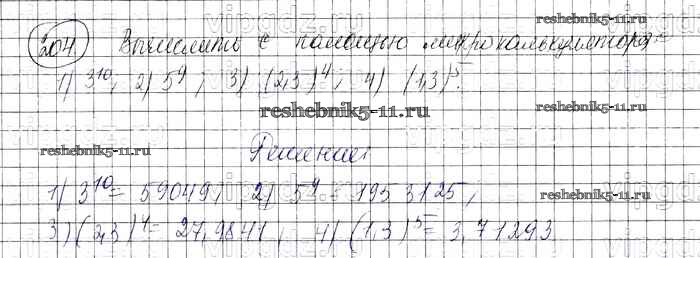 204 Вычислить с помощью микрокалькулятора:
1) 3^10; 2) 5^9; 3) (2,3)^4; 4) (1,3)^5.
reshebnik5-11.ru
reshebnik5-11.ru
reshebnik5-11.ru
Решение:
1) 3^10 = 59049; 2) 5^9 = 1953125;
reshebnik5-11.ru
3) (2,3)^4 = 27,9841; 4) (1,3)^5 = 3,71293